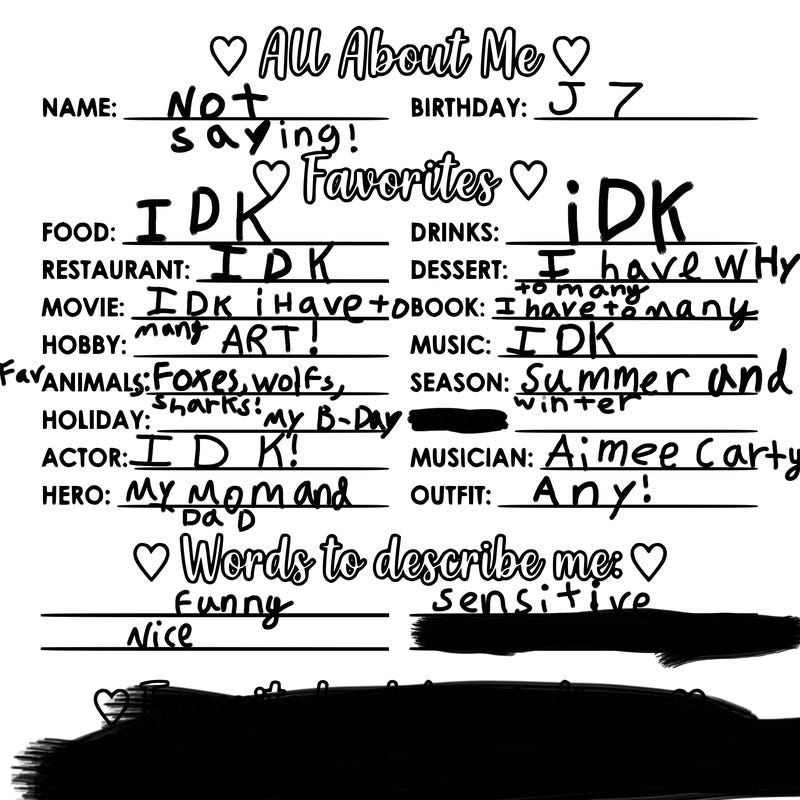 All About Me
NAME: Not BIRTHDAY: J 7
saying!
Favorites
FOOD: IDK DRINKS: iDK
RESTAURANT: IDK DESSERT: I have WHY
to many
MOVIE: IDK iHave to BOOK: I have to many
many
HOBBY: ART! MUSIC: IDK
Fav ANIMALS: Foxes, wolfs, SEASON: Summer and
sharks! winter
HOLIDAY: My B-Day
ACTOR: IDK! MUSICIAN: Aimee Carty
HERO: My Mom and OUTFIT: Any!
DaD
Words to describe me:
Funny sensitive
Nice